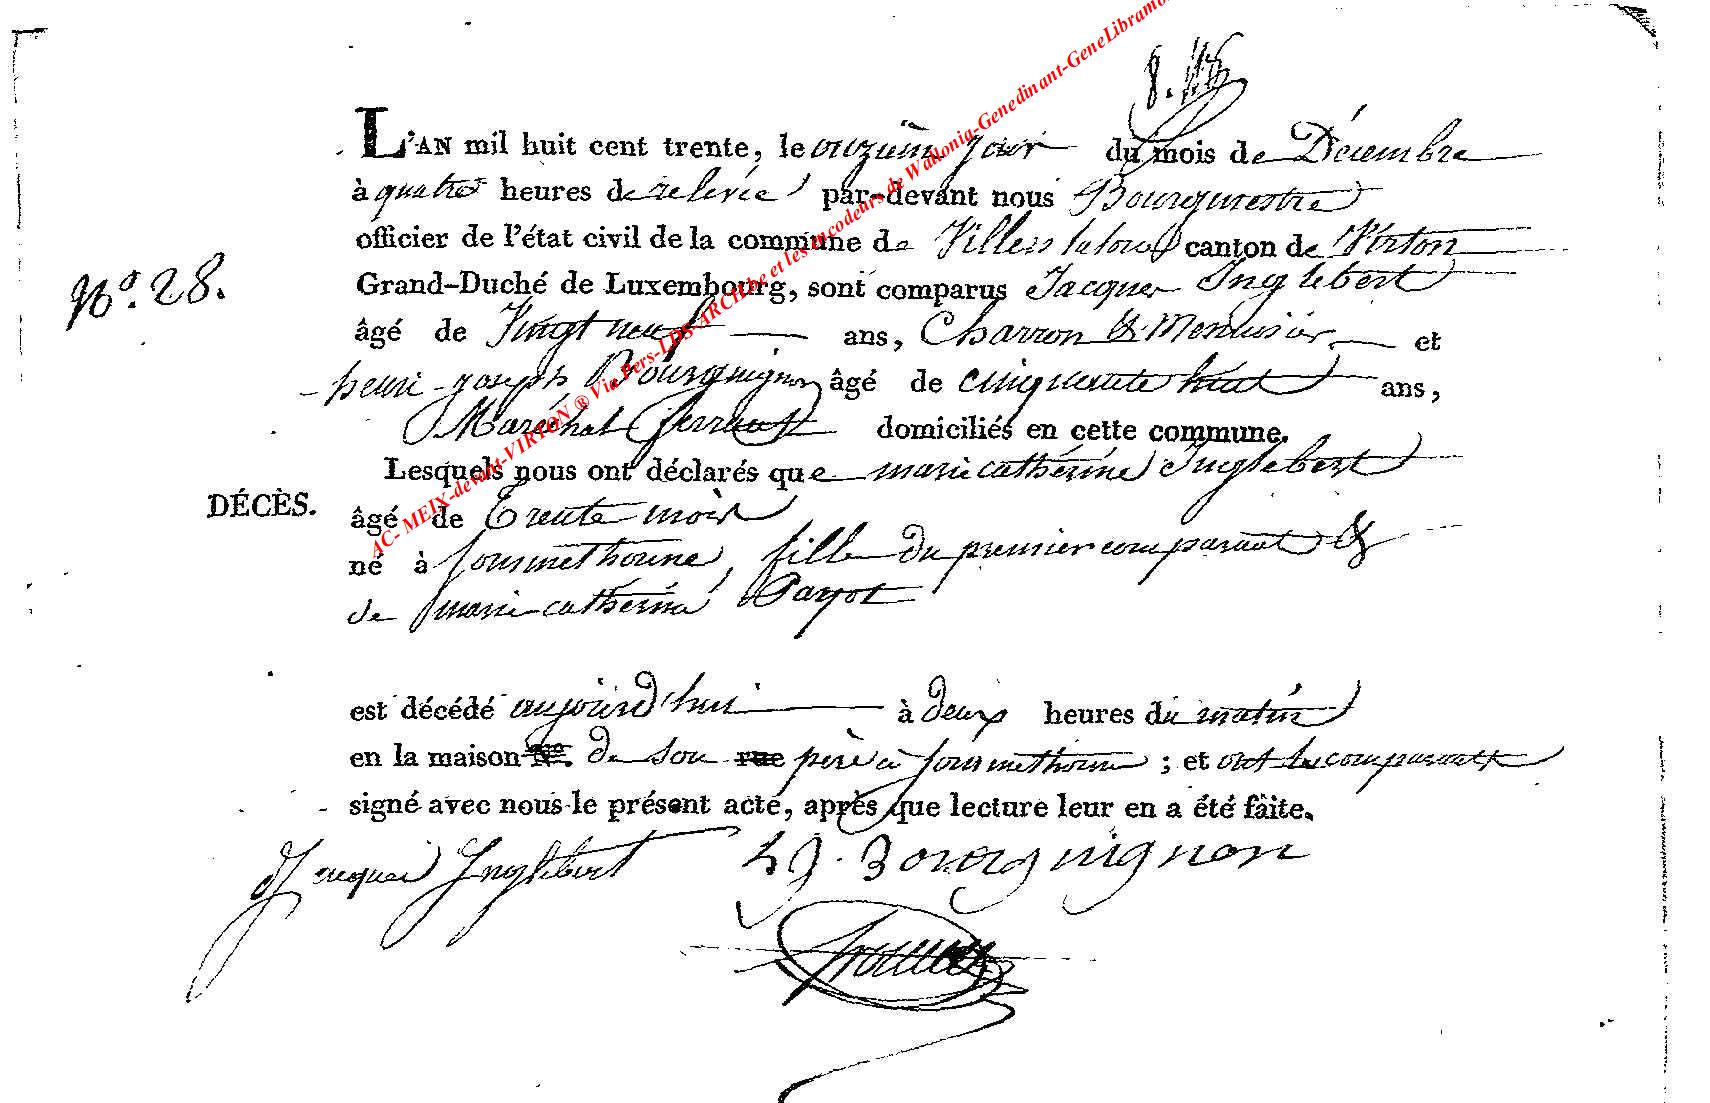 L'AN mil huit cent trente, le onzieme jour du mois de Décembre
à quatre heures de relevée par-devant nous Bourgmestre
officier de l'état civil de la commune de Villers laloue canton de Virton
N°. 28.
Grand-Duché de Luxembourg, sont comparus Jacques Inglebert
âgé de Vingt neuf ans, Charron & Menuisier et
henri joseph Bourguignon âgé de cinquante huit ans,
Maréchal ferrant domiciliés en cette commune.
Lesquels nous ont déclarés que marie catherine Inglebert
DÉCÈS.
âgé de Trente mois
né à Sommethonne, fille du premier comparant &
de marie catherine Payot
est décédé aujourd'hui à deux heures du matin
en la maison N°. de son rue père à Sommethonne ; et ont les comparants
signé avec nous le présent acte, après que lecture leur en a été faite.
Jacques Inglebert hj. Bourguignon
AC- MEIX-devant-VIRTON ® Via Pers-LDS-ARCH.be et les encodeurs de Wallonia-Genedinant-GeneLibramo